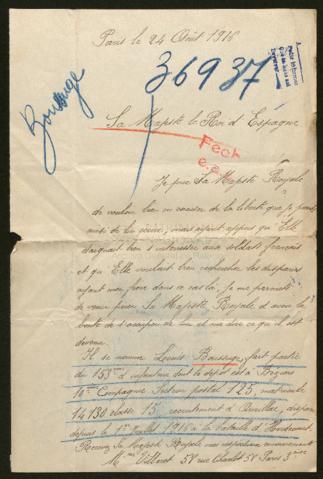 Paris le 24 Août 1916
36937
Boussuge
Sa Majesté le Roi d'Espagne
Fech
e.a.
Je prie Sa Majesté Royale
de vouloir bien m'excuser de la liberté que je prends
mais ayant appris qu'Elle
daignait bien s'intéresser aux soldats français
et qu'Elle voulait bien rechercher les disparus
ayant mon frère dans ce cas là, je me permets
de venir prier Sa Majesté Royale d'avoir la
bonté de s'occuper de lui et me dire ce qu'il est
devenu.
Il se nomme Louis Boussuge, fait partie
du 153ème d'infanterie dont le dépôt est a Béziers
10ème Compagnie Secteur postal 125, matricule
14130 classe 15 recrutement d'Aurillac, disparu
depuis le 1er Juillet 1916 a la bataille d'
Recevez Sa Majesté Royale mes
Mme 58 rue Charlot 58 Paris 3ème